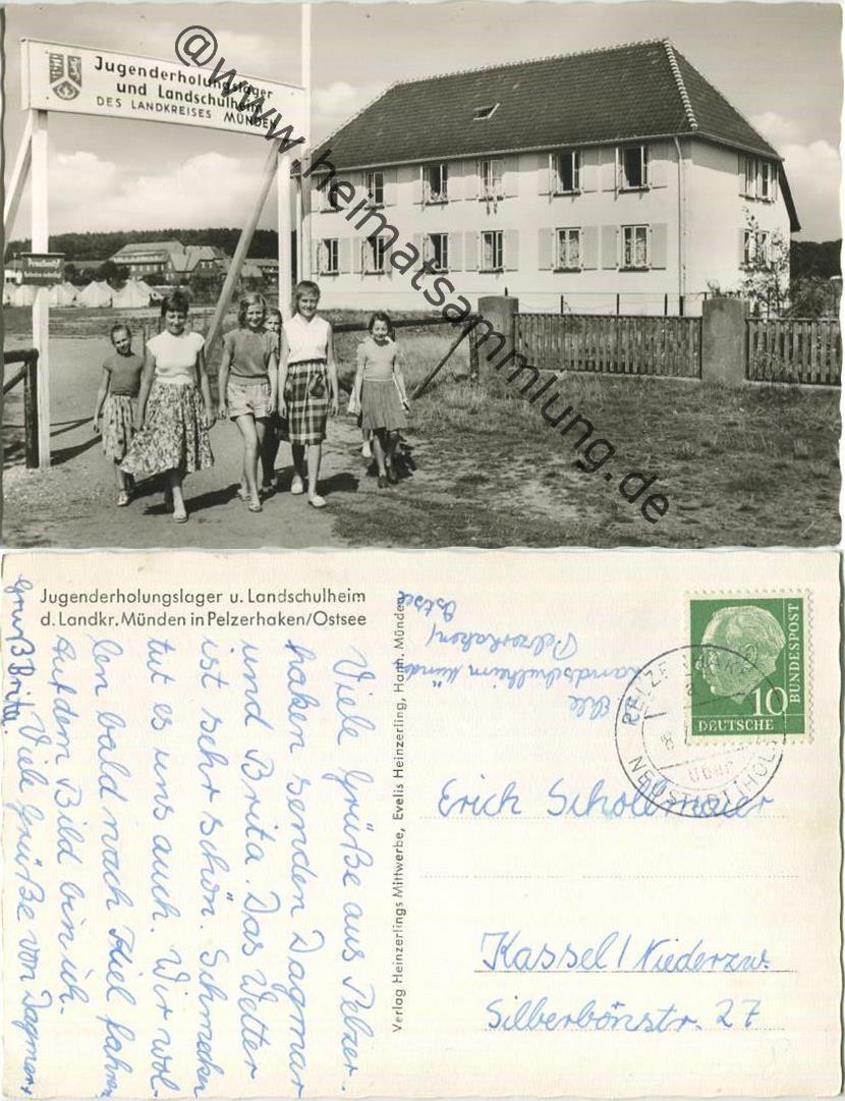 Jugenderholungslager
und Landschulheim
DES LANDKREISES MÜNDEN
@www.heimatsammlung.de
Jugenderholungslager u. Landschulheim
d. Landkr. Münden in Pelzerhaken/Ostsee
Viele Grüße aus Pelzer-
haken senden Dagmar
und Brita. Das Wetter
ist sehr schön. Schmecken
tut es uns auch. Wir wol-
len bald nach Kiel fahren
Auf dem Bild bin ich.
Viele Grüße von Dagmar
Gruß Brita.
Verlag Heinzerlings Mittwerbe, Evelis Heinzerling, Hann. Münden
Landschulheim
Pelzerhaken/
Ostsee
10
DEUTSCHE
BUNDESPOST
über
Erich Schollmaier
Kassel/Niederzw.
Silberbornstr. 27